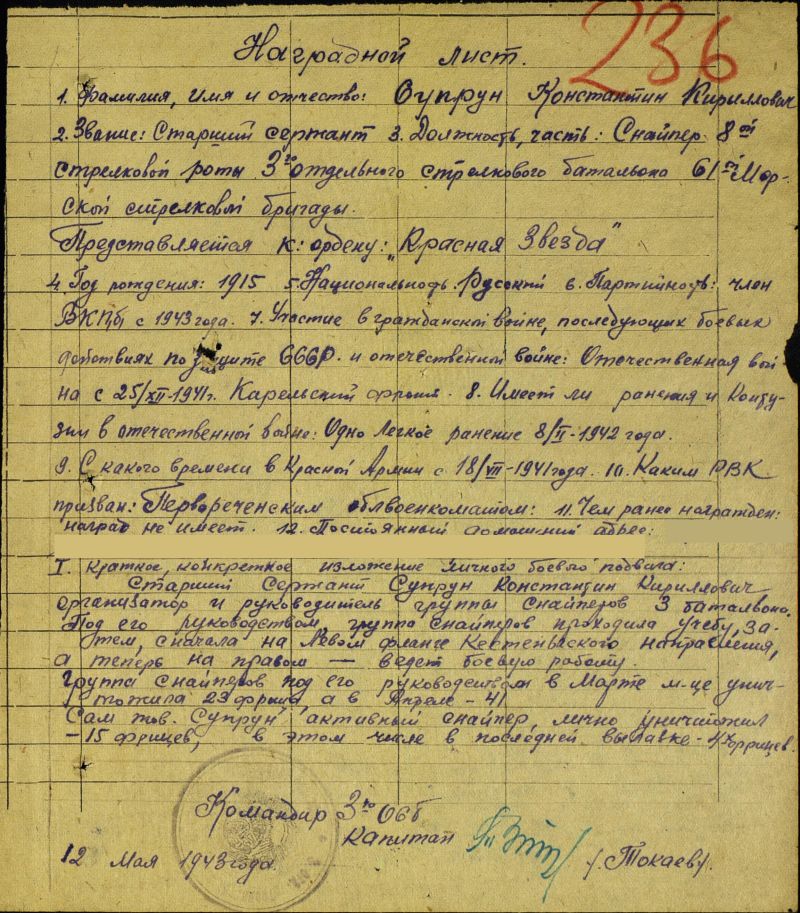 236
Наградной лист.
1. Фамилия, имя и отчество: Супрун Константин Кириллович
2. Звание: Старший сержант 3. Должность, часть: Снайпер 8ой
стрелковой роты 3го отдельного стрелкового батальона 61ой Мор-
ской стрелковой бригады.
Представляется к: ордену: „Красная Звезда"
4. Год рождения: 1915 5. Национальность Русский 6. Партийность: член
ВКП(б) с 1943 года. 7. Участие в гражданской войне, последующих боевых
действиях по защите СССР. и отечественной войне: Отечественная вой
на с 25/XII-1941г. Карельский фронт. 8. Имеет ли ранения и Конту-
зии в отечественной войне: Одно Легкое ранение 8/II-1942 года.
9. С какого времени в Красной Армии с 18/VII-1941 года. 10. Каким РВК
призван: Первореченским облвоенкоматом: 11. Чем ранее награжден:
наград не имеет. 12. Постоянный домашний адрес:
I. Краткое, конкретное изложение личного боевого подвига:
Старший Сержант Супрун Константин Кириллович
организатор и руководитель группы снайперов 3 батальона.
Под его руководством, группа снайперов проходила учебу, за-
тем, сначала на Левом фланге Кестеньгского направления,
а теперь на правом — ведет боевую работу.
Группа снайперов под его руководством в Марте м-це унич-
тожила 23 фрица, а в Апреле - 41
Сам тов. Супрун активный снайпер, лично уничтожил
- 15 фрицев, в этом числе в последней вылазке - 4 фрицев.
Командир 3го ОСБ
капитан
/Токаев/.
12 Мая 1943 года